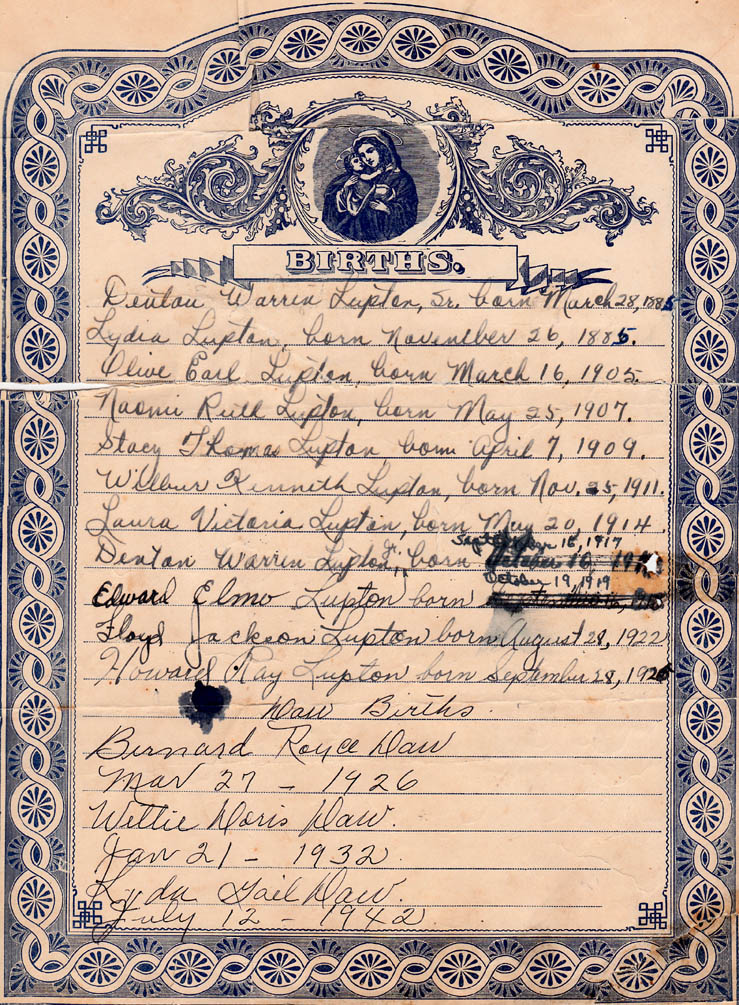 BIRTHS.
Denton Warren Lupton, Sr. born March 28, 1885
Lydia Lupton, born November 26, 1885.
Olive Earl Lupton, born March 16, 1905.
Naomi Ruth Lupton, born May 25, 1907.
Stacy Thomas Lupton born April 7, 1909.
Wilbur Kenneth Lupton, born Nov. 25, 1911.
Laura Victoria Lupton, born May 20, 1914
September 16, 1917
Denton Warren Lupton Jr., born October 16, 
October 19, 1919
Edward Elmo Lupton born
Floyd Jackson Lupton born August 28, 1922
Howard Ray Lupton born September 28, 1925
Daw Births.
Bernard Royce Daw
Mar 27 - 1926
Wettie Doris Daw.
Jan 21 - 1932.
Lyda Gail Daw.
July 12 - 1942.